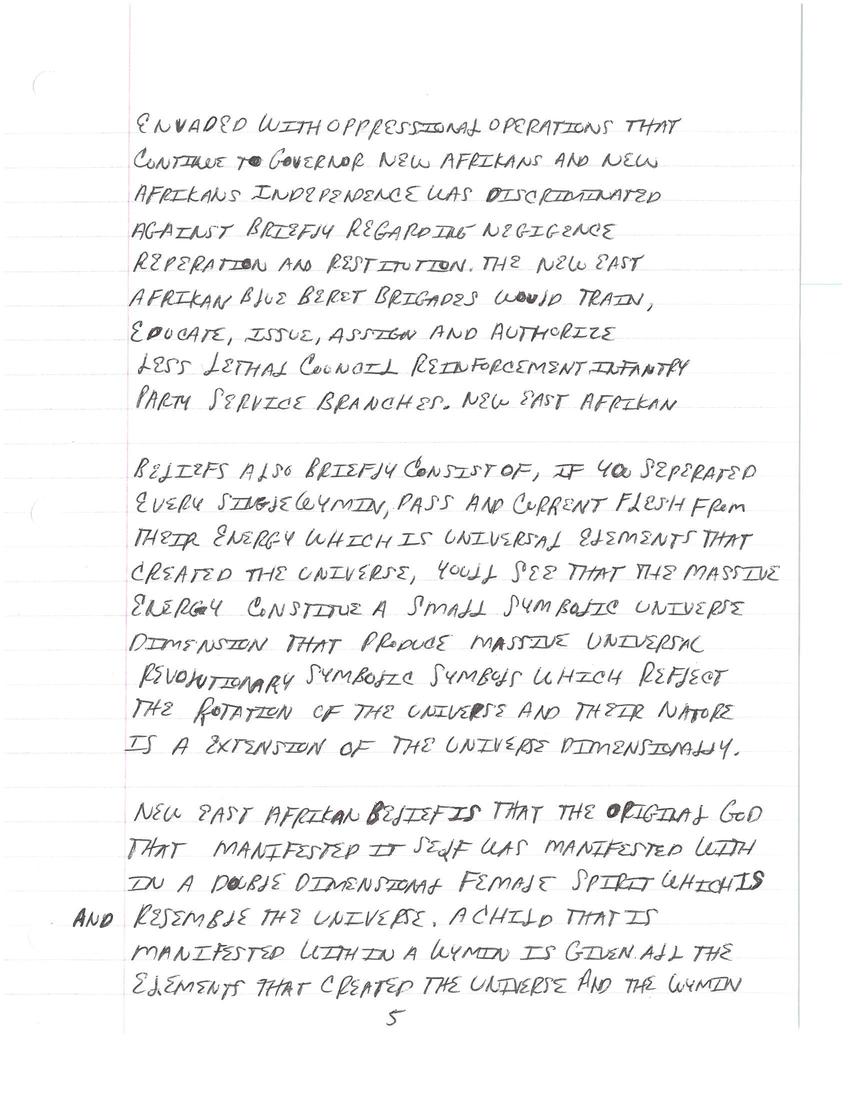 ENVADED WITH OPPRESSIONAL OPERATIONS THAT
CONTINUE TO GOVERNOR NEW AFRIKANS AND NEW
AFRIKANS INDEPENDENCE WAS DISCRIMINATED
AGAINST BRIEFLY REGARDING NEGIGENCE
REPERATION AND RESTITUTION. THE NEW EAST
AFRIKAN BLUE BERET BRIGADES WOULD TRAIN,
EDUCATE, ISSUE, ASSIGN AND AUTHORIZE
LESS LETHAL COUNCIL REINFORCEMENT INFANTRY
PARTY SERVICE BRANCHES. NEW EAST AFRIKAN
BELIEFS ALSO BRIEFLY CONSIST OF, IF YOU SEPERATED
EVERY SINGLE WYMIN, PASS AND CURRENT FLESH FROM
THEIR ENERGY WHICH IS UNIVERSAL ELEMENTS THAT
CREATED THE UNIVERSE, YOULL SEE THAT THE MASSIVE
ENERGY CONSTITUE A SMALL SYMBOLIC UNIVERSE
DIMENSION THAT PRODUCE MASSIVE UNIVERSAL
REVOLUTIONARY SYMBOLIC SYMBOLS WHICH REFLECT
THE ROTATION OF THE UNIVERSE AND THEIR NATURE
IS A EXTENSION OF THE UNIVERSE DIMENSIONALLY.
NEW EAST AFRIKAN BELIEF IS THAT THE ORIGINAL GOD
THAT MANIFESTED IT SELF WAS MANIFESTED WITH
IN A DOUBLE DIMENSIONAL FEMALE SPIRIT WHICH IS
AND RESEMBLE THE UNIVERSE. A CHILD THAT IS
MANIFESTED WITH IN A WYMIN IS GIVEN ALL THE
ELEMENTS THAT CREATED THE UNIVERSE AND THE WYMIN
5